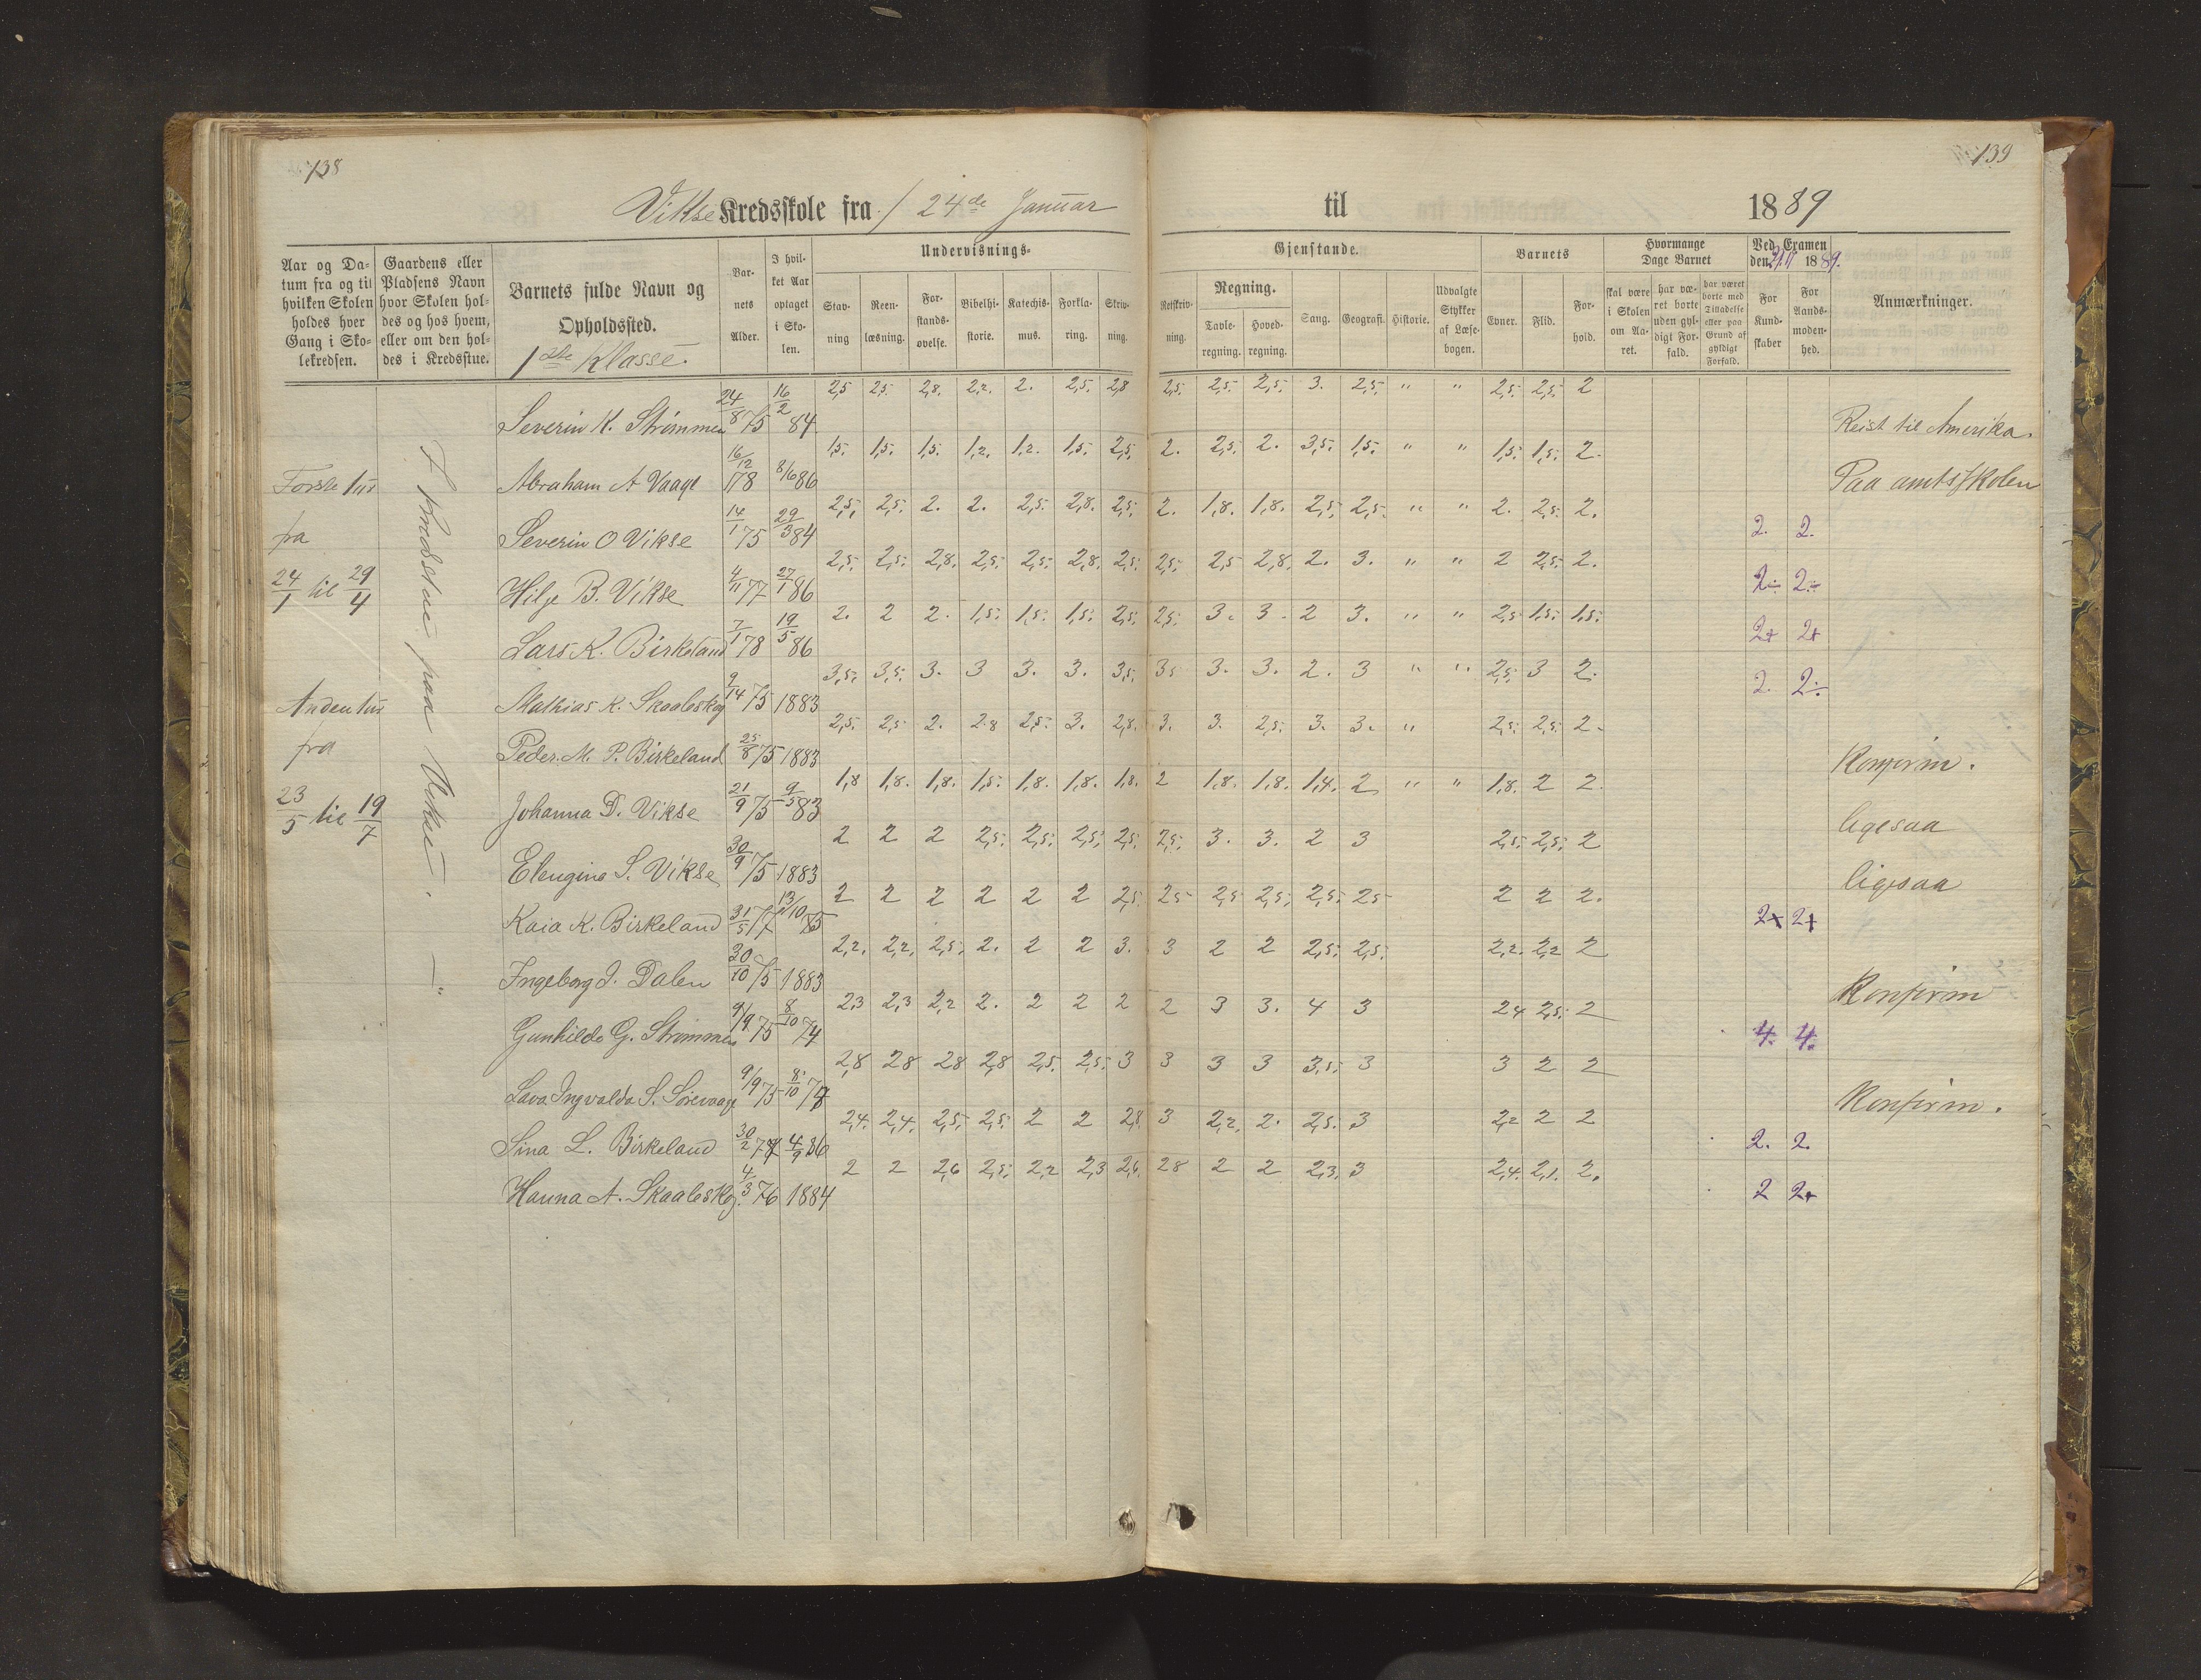 138
139
Vikse Kredsskole fra 24de Januar til 1889
Aar og Da-
tum fra og til
hvilken Skolen
holdes hver
Gang i Sko-
lekredsen.
Gaardens eller
Pladsens Navn
hvor Skolen hol-
des og hos hvem,
eller om den hol-
des i Kredsstue.
Barnets fulde Navn og
Opholdssted.
1ste Klasse.
Bar-
nets
Alder.
I hvil-
ket Aar
optaget
i Sko-
len.
Undervisnings-
Stav-
ning
Reen-
læsning.
For-
stands-
øvelse.
Bibelhi-
storie.
Katechis-
mus.
Forkla-
ring.
Skriv-
ning.
Gjenstande.
Retskriv-
ning.
Regning.
Tavle-
regning.
Hoved-
regning.
Sang.
Geografi.
Historie.
Udvalgte
Stykker
af Læse-
bogen.
Barnets
Evner.
Flid.
For-
hold.
Hvormange
Dage Barnet
skal være
i Skolen
om Aa-
ret.
har væ-
ret borte
uden gyl-
digt For-
fald.
har været
borte med
Tilladelse
eller paa
Grund af
gyldigt
Forfald.
Ved Examen
den 1889.
For
Kund-
skaber
For
Aands-
moden-
hed.
Anmærkninger.
Første tur
fra
24/1 til 29/4
Anden tur
fra
23/5 til 19/7
paa Vikse.
Severin K. Strømmen 24/8 75 16/2 84 2,5 2,5. 2,8. 2,2. 2. 2,5. 2,8 2,5. 2,5. 2,5. 3. 2,5. " " 2,5. 2,5. 2 Reist til Amerika.
Abraham A Vaage 16/12 78 8/6 86 1,5. 1,5. 1,5. 1,2. 1,2. 1,5. 2,5. 2. 2,5. 2. 3,5. 1,5. " " 1,5. 1,5. 2. Paa amtsskolen
Severin O Vikse 14/1 75 29/3 84 2,5. 2,5. 2. 2. 2,5. 2,8. 2,5. 2. 1,8. 1,8. 2,5. 2,5. " " 2. 2,5. 2. 2. 2.
Hilje B. Vikse 4/11 77 27/1 86 2,5. 2,5. 2,8. 2,5. 2,5. 2,8. 2,5. 2,5. 2,5 2,8. 2. 3. " " 2 2,5. 2. 2÷ 2÷
Lars K. Birkeland 7/1 78 19/5 86 2. 2 2. 1,5. 1,5. 1,5. 2,5. 2,5. 3. 3. 2 3. " " 2,5 1,5. 1,5. 2+ 2+
Mathias K. Skaaleskog 9/14 75 1883 3,5. 3,5. 3. 3 3. 3. 3,5. 3,5 3. 3. 2. 3 " " 2,5. 3 2. 2. 2÷
Peder M. P. Birkeland 25/8 75 1883 2,5. 2,5 2. 2.8 2,5. 3. 2,8. 3. 3. 2,5. 3. 3. " 2,5. 2,5. 2. Konfirm.
Johanna D. Vikse 21/9 75 9/5 83 1,8 1,8. 1,8. 1,5. 1,8. 1,8. 1,8. 2 1,8. 1,8. 1,4. 2 " " 1,8. 2 2. ligesaa
Elengine S. Vikse 30/9 75 1883 2 2 2 2,5. 2,5. 2,5. 2,5. 2,5. 3. 3. 2 3 2,5. 2,5. 2 ligesaa
Kaia K. Birkeland 31/5 77 13/10 85 2 2 2 2 2 2 2,5. 2,5 2,5 2,5. 2,5. 2,5 2 2 2. 2+ 2+
Ingeborg J. Dalen 30/10 75 1883 2,2. 2,2. 2,5. 2. 2 2 3. 3 2 2 2,5. 2,5. 2,2. 2,2 2 Konfirm
Gunhilde G. Strømmen 9/9 75 8/10 74 2,3 2,3 2,2 2. 2 2 2 2 3 3. 4 3 2,4 2,5. 2 4. 4.
Lava Ingvalda S. Sørevaage 9/9 75 8/10 78 2,8 28 28 2,8 2,5. 2,5. 3 3 3 3 3,5. 3 3 2 2 Konfirm.
Sina L. Birkeland 30/2 77 4/9 86 2,4. 2,4. 2,5. 2,5. 2 2 2,8. 3 2,2. 2. 2,5. 3 2,2 2 2 2. 2.
Hanna A. Skaaleskog. 4/3 76 1884 2 2 2,6 2,5. 2,2 2,3 2,6. 28 2 2 2,3. 3 2,4. 2,1. 2. 2 2+